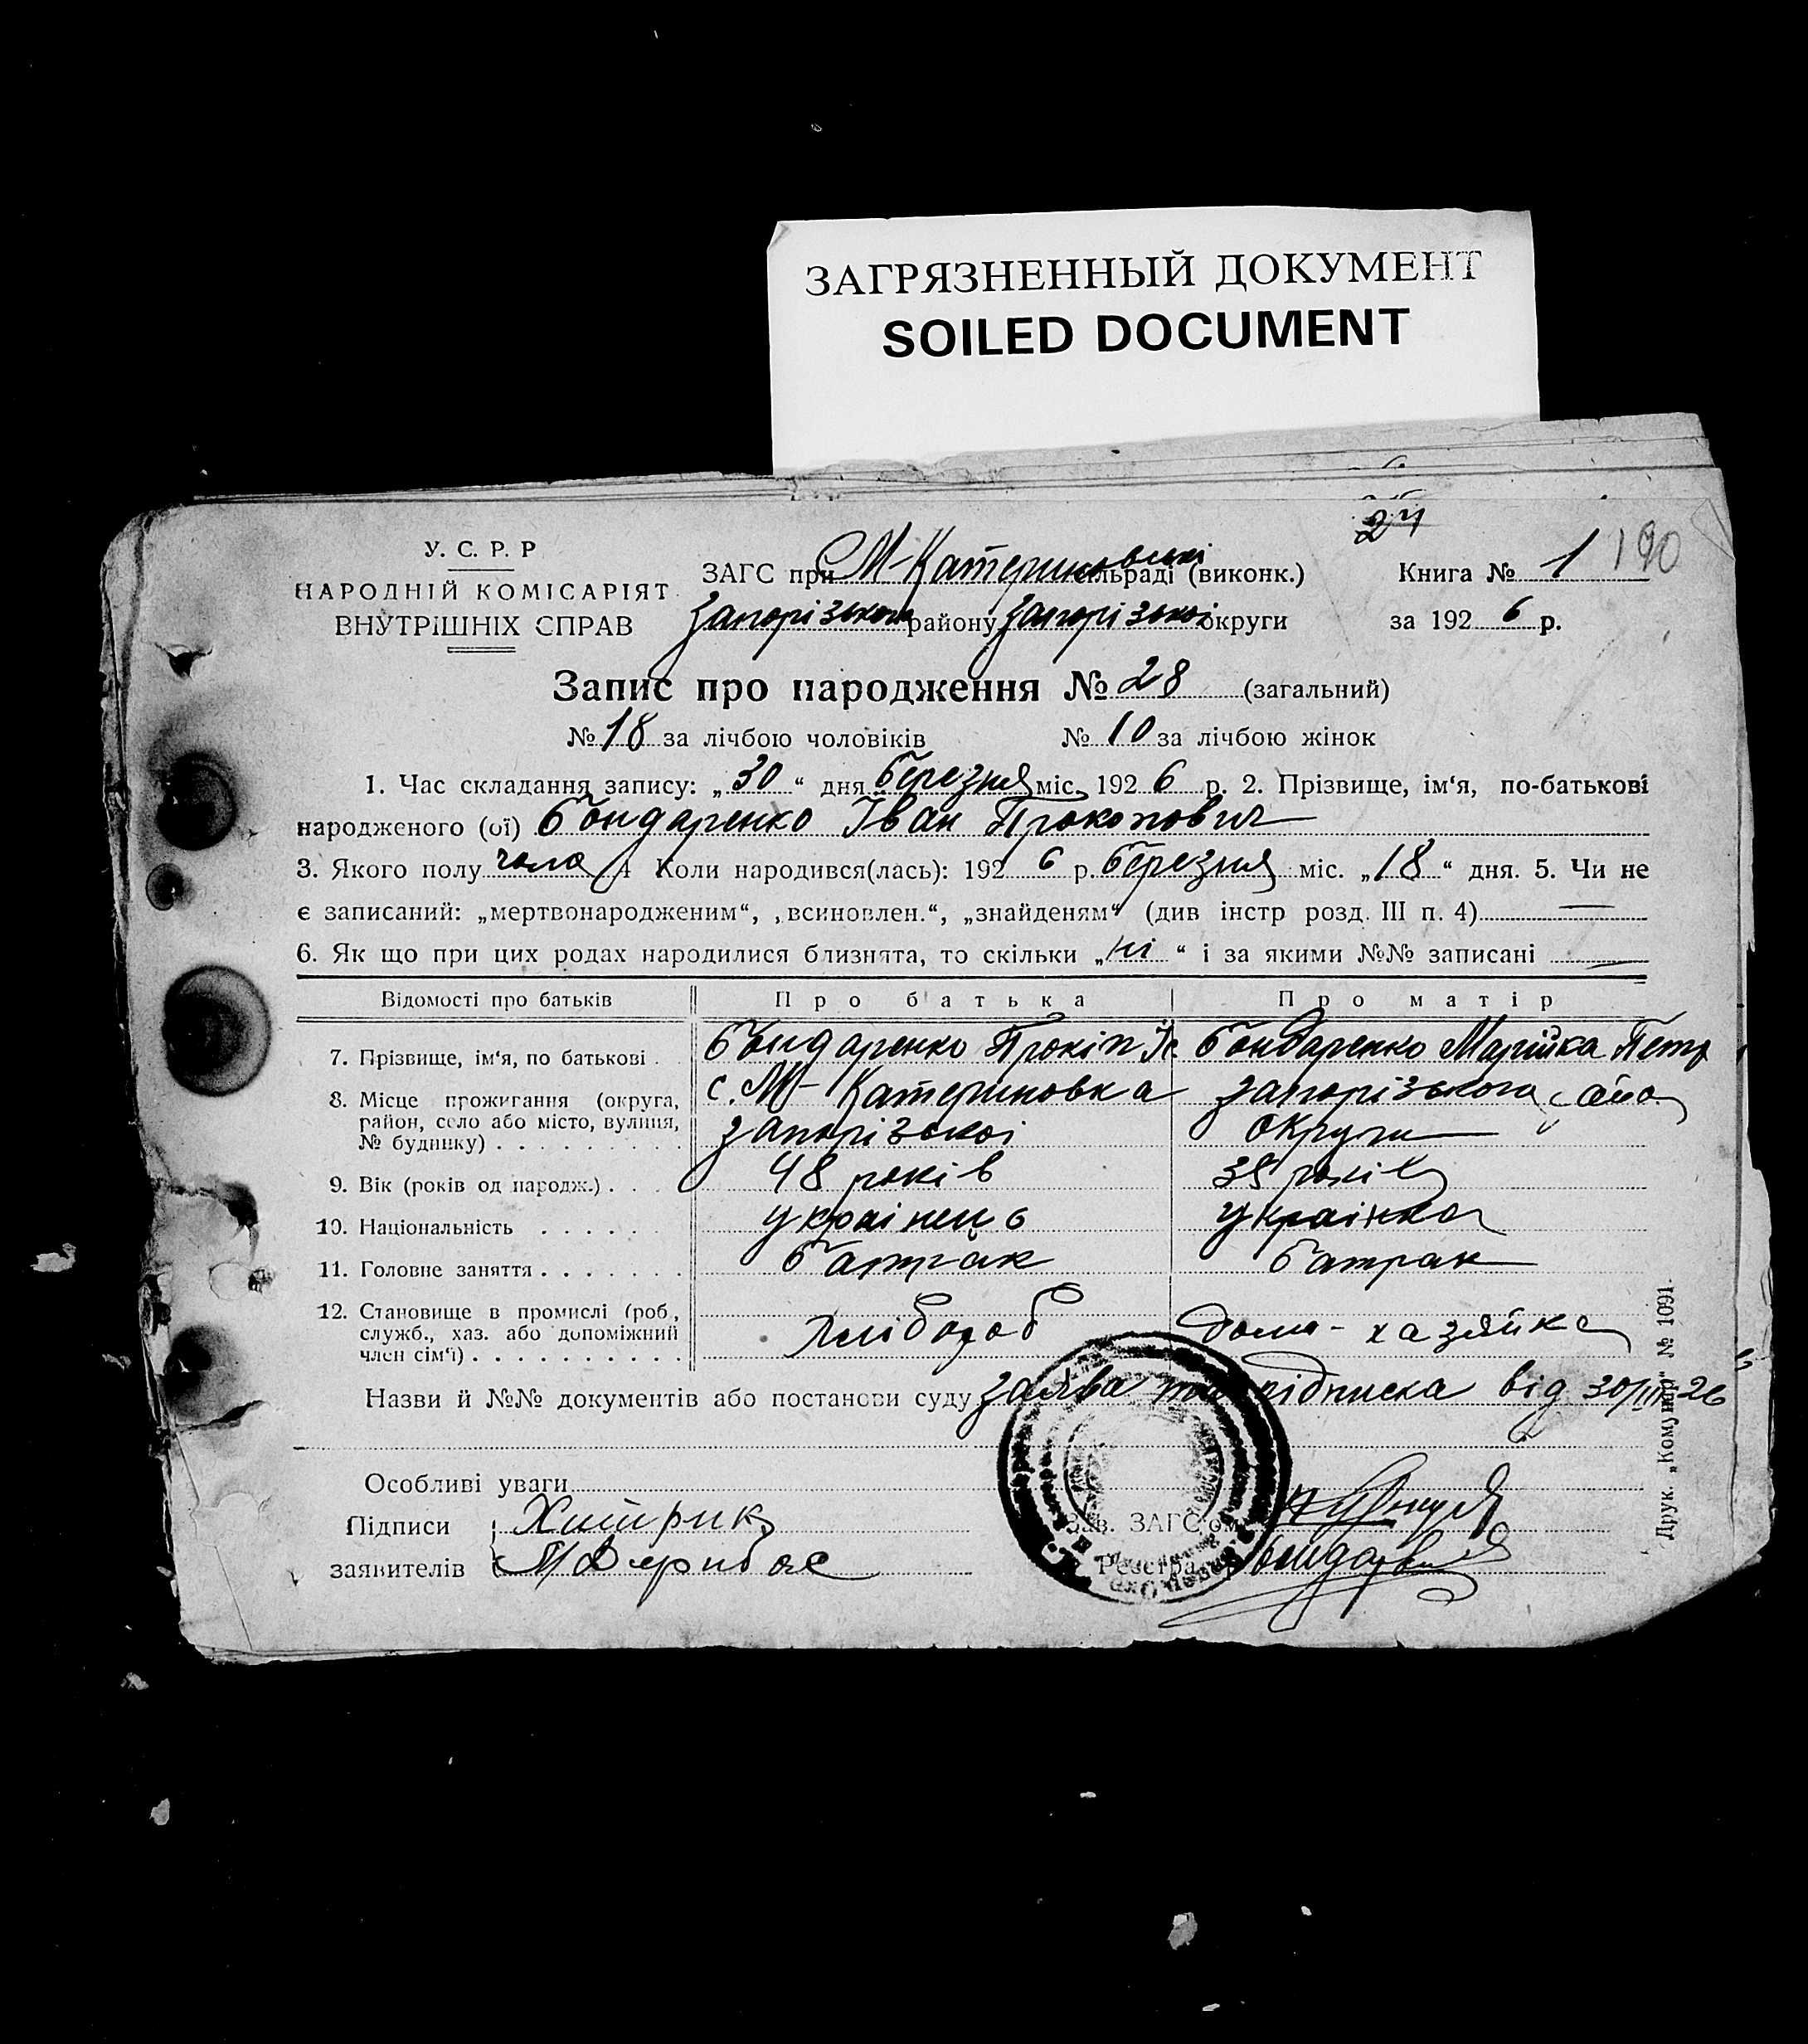 ЗАГРЯЗНЕННЫЙ ДОКУМЕНТ
SOILED DOCUMENT
24
У. С. Р. Р
НАРОДНІЙ КОМІСАРІЯТ
ВНУТРІШНІХ СПРАВ
ЗАГС при М-Катериновські сільраді (виконк.)
Запорізького району Запорізькоі округи
Книга № 1 190
за 1926 р.
Запис про народження № 28 (загальний)
№ 18 за лічбою чоловіків № 10 за лічбою жінок
1. Час складання запису: „30“ дня березня міс. 1926 р. 2. Прізвище, ім‘я, по-батькові
народженого (ої) Бондаренко Іван Прокопович
3. Якого полу чоло 4 Коли народився(лась): 1926 р. березня міс. „18“ дня. 5. Чи не
є записаний: „мертвонародженим“, „всиновлен.“, „знайденям“ (див інстр розд. III п. 4) —
6. Як що при цих родах народилися близнята, то скільки „ні“ і за якими №№ записані —
Відомості про батьків Про батька Про матір
7. Прізвище, ім‘я, по батькові . Бондаренко Прокіп Бондаренко Марійка Петр
8. Місце проживання (округа, район, село або місто, вулиця, № будинку) . . . . . . . . . с. М-Катериновка Запорізького
запорізькоі округи
9. Вік (років од народж.) . . . 48 років 38 років
10. Національність . . . . . . українець українка
11. Головне заняття . . . . . . . батрак батрак
12. Становище в промислі (роб., служб., хаз. або допоміжний член сім‘ї) . . . . . . . . . . хлібороб домо-хазяйка
Назви й №№ документів або постанови суду заява та підписка від 30/III 26
Особливі уваги
Підписи
заявителів
Зав. ЗАГС‘ом
Реєстра
Друк. „Комунар“ № 1091.